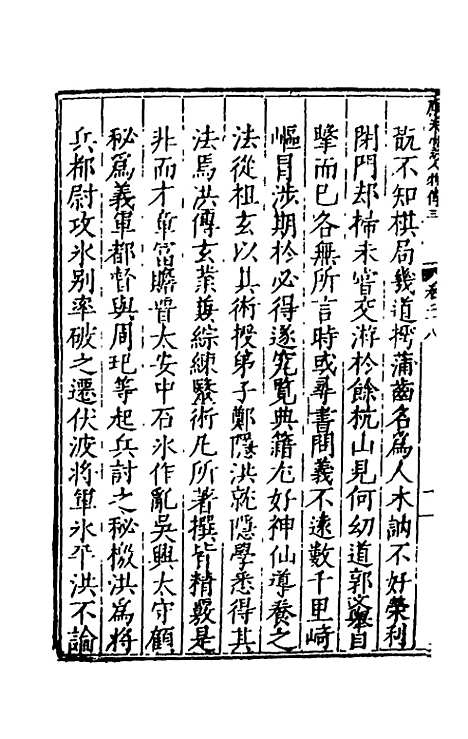 翫不知棋局幾道摴蒲齒名為人木訥不好榮利
閉門却掃未嘗交游於餘杭山見何幼道郭文舉目
擊而已各無所言時或尋書問義不遠數千里崎
嶇冒涉期於必得遂究覽典籍尤好神仙導養之
法從祖玄以其術授弟子鄭隱洪就隱學悉得其
法焉洪傳玄業兼綜練醫術凡所著撰皆精覈是
非而才章富贍晉太安中石氷作亂吳興太守顧
秘為義軍都督與周玘等起兵討之秘檄洪為將
兵都尉攻氷別率破之遷伏波將軍氷平洪不論